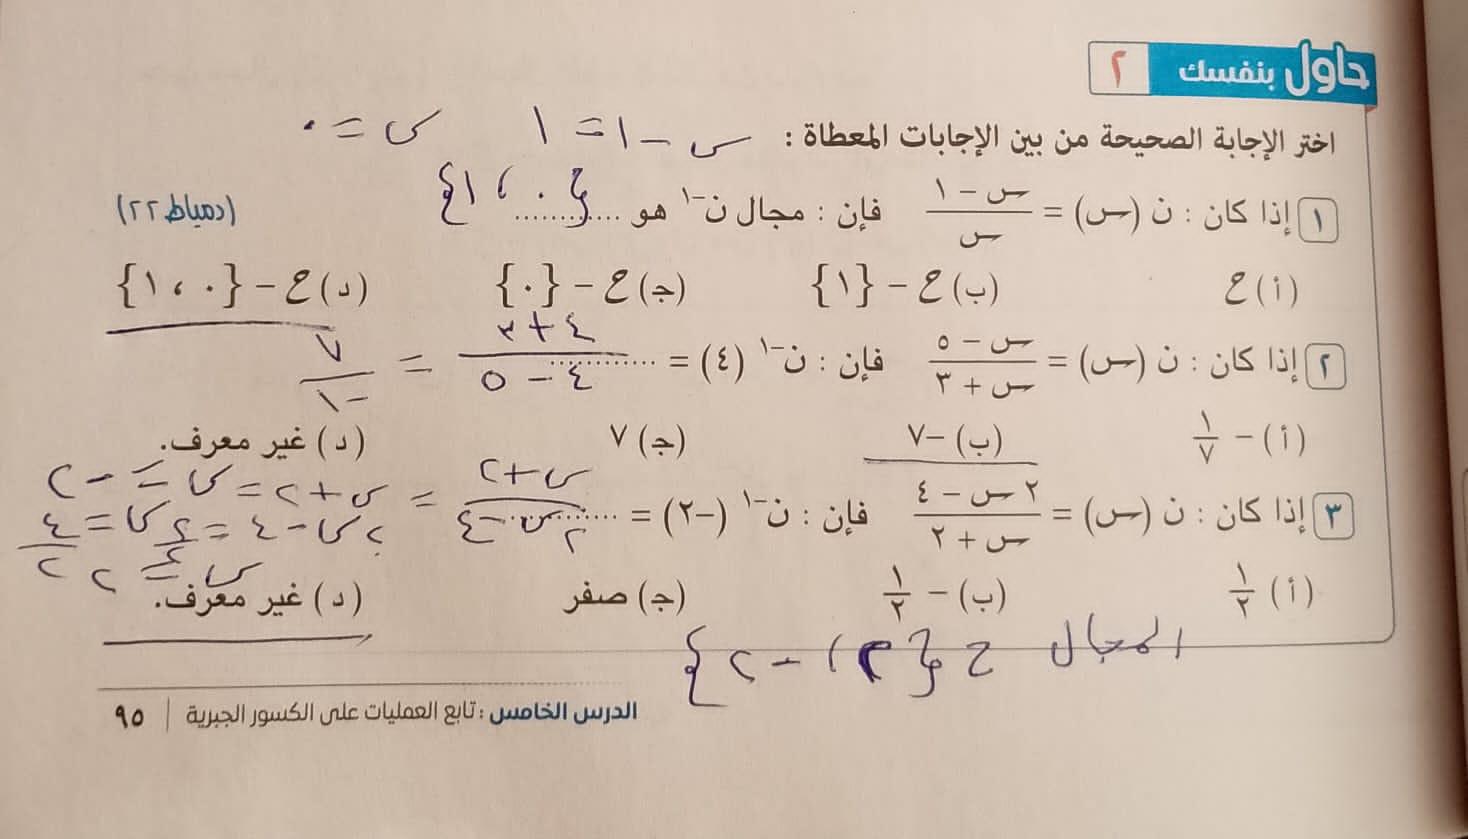 حاول بنفسك ٢
اختر الإجابة الصحيحة من بين الإجابات المعطاة : س - ١ = ١ س = ٠
١ إذا كان : ن (س) = (س - ١)/س فإن : مجال ن⁻¹ هو ............ {٠ ، ١} (دمياط ٢٢)
(أ) ح (ب) ح - {١} (جـ) ح - {٠} (د) ح - {٠ ، ١}
٢ إذا كان : ن (س) = (س - ٥)/(س + ٣) فإن : ن⁻¹ (٤) = ............ (٤ + ٣)/(٤ - ٥) = ٧/-١
(أ) - ١/٧ (ب) -٧ (جـ) ٧ (د) غير معرف.
٣ إذا كان : ن (س) = (٢ س - ٤)/(س + ٢) فإن : ن⁻¹ (-٢) = ............ (س + ٢)/(٢س - ٤) =
س + ٢ = س = - ٢
٢س - ٤ = ٢س = ٤
س = ٤/٢ ٢
(أ) ١/٢ (ب) - ١/٢ (جـ) صفر (د) غير معرف.
المجال ح {٢ ، - ٢}
الدرس الخامس : تابع العمليات على الكسور الجبرية | ٩٥